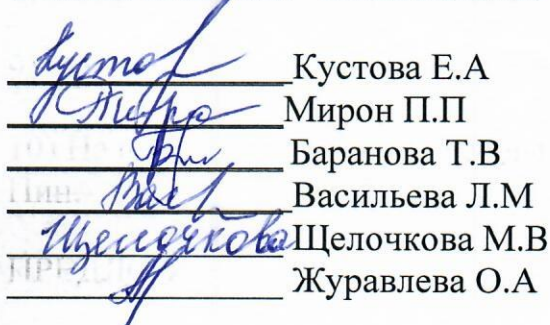 Кустова Е.А
Мирон П.П
Баранова Т.В
Васильева Л.М
Щелочкова Щелочкова М.В
Журавлева О.А